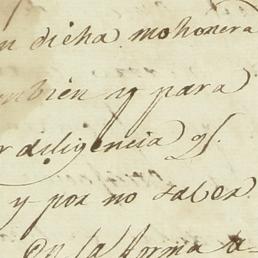 n dicha mohonera
mbien y para
r diligencia qᵉ.
y por no saber
en la forma a-